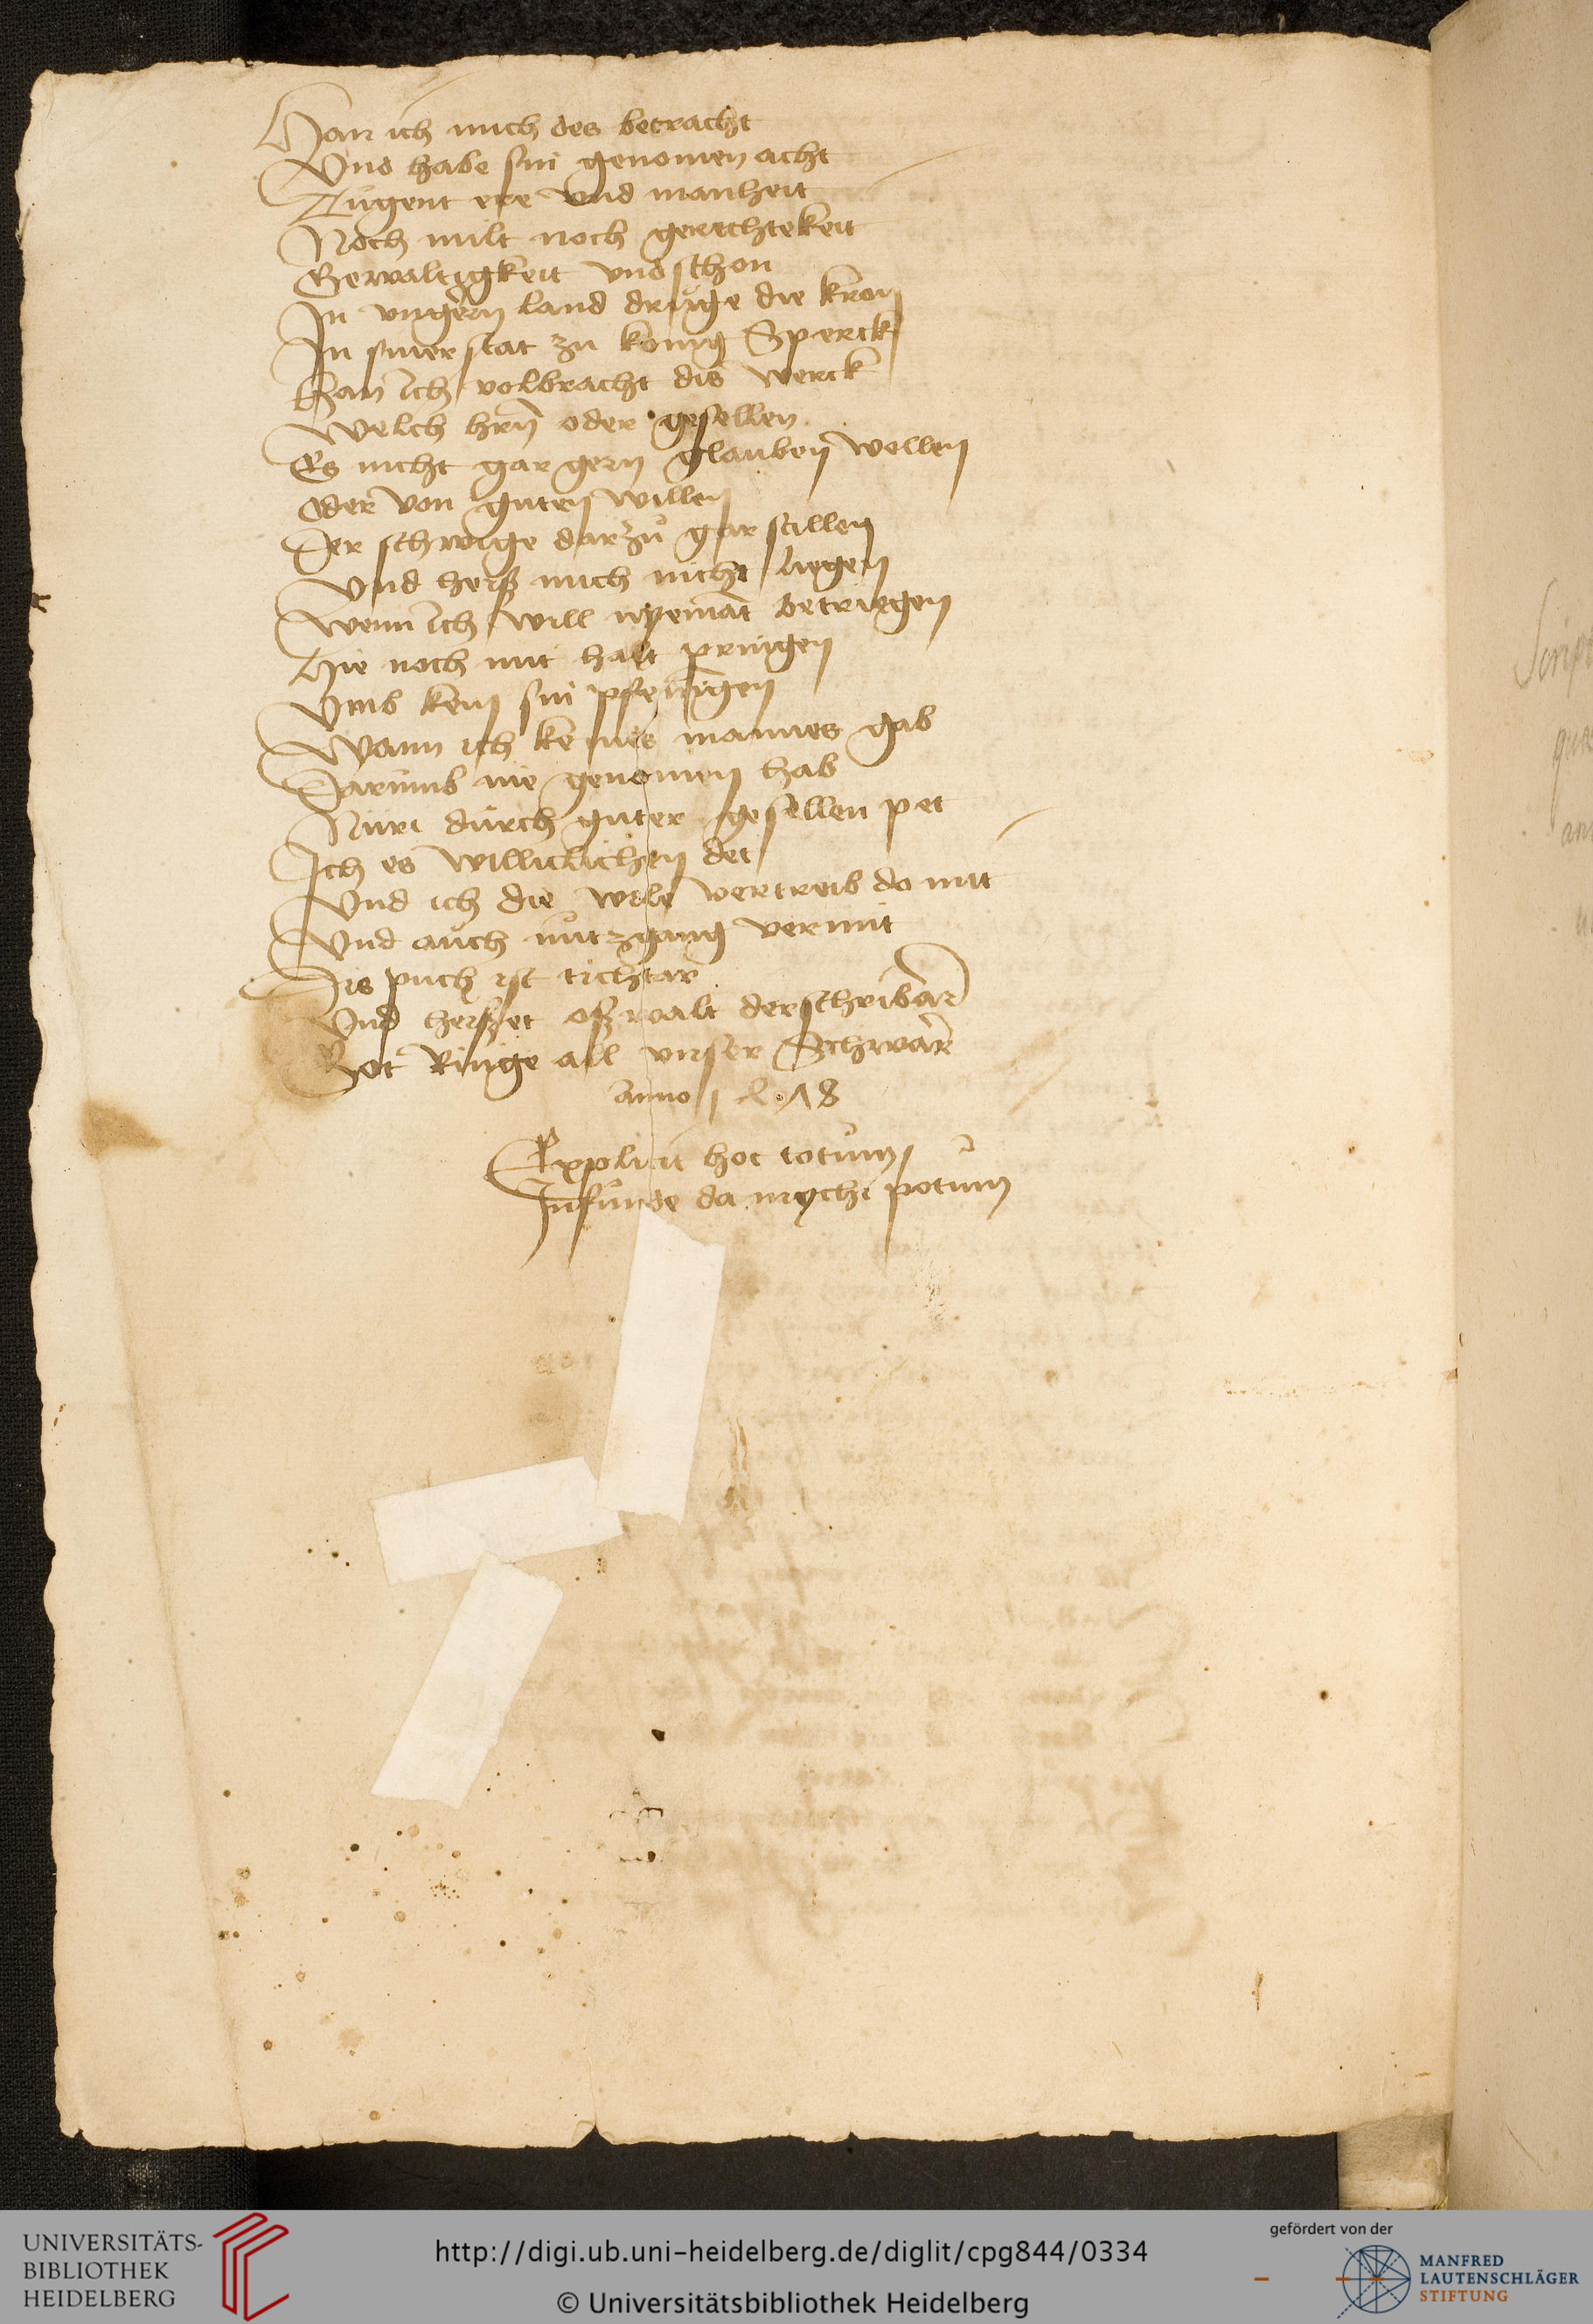 Han ich mich des betracht
Vnd habe sin genomen acht
Tugent ere vnd manheit
Noch milt noch gerechtekeit
Gewaltigkeit vnd schon
In vngern land druge die kron
In siner stat zu konig Sperck
Han ich volbracht dis werck
Welch hrn̄ oder gesellen
Es nicht gar gern glauben wollen
Oder von guten willen
Der schwige darzu gar stillen
Vnd heiß mich nicht liegen
Wenn ich will nyemāt betriegen
Hie noch mit halt pringen
Vmb kein sin pfenigen
Wann ich keines mannes gab
Darumb nie genomen hab
Nuri durch guter gesellen pet
Ich es williclichen det
Vnd ich die wile vertreib do mit
Vnd auch mutzgang vermit
Dis puch ist tichtar
Vnd heisset oßwalt der schribar
Got Ringe all vnser Schwar
anno 18
Explicit hoc totum
Infunde da mychi potum
Scrip
UNIVERSITÄTS-
BIBLIOTHEK
HEIDELBERG
http://digi.ub.uni-heidelberg.de/diglit/cpg844/0334
© Universitätsbibliothek Heidelberg
gefördert von der
MANFRED
LAUTENSCHLÄGER
STIFTUNG